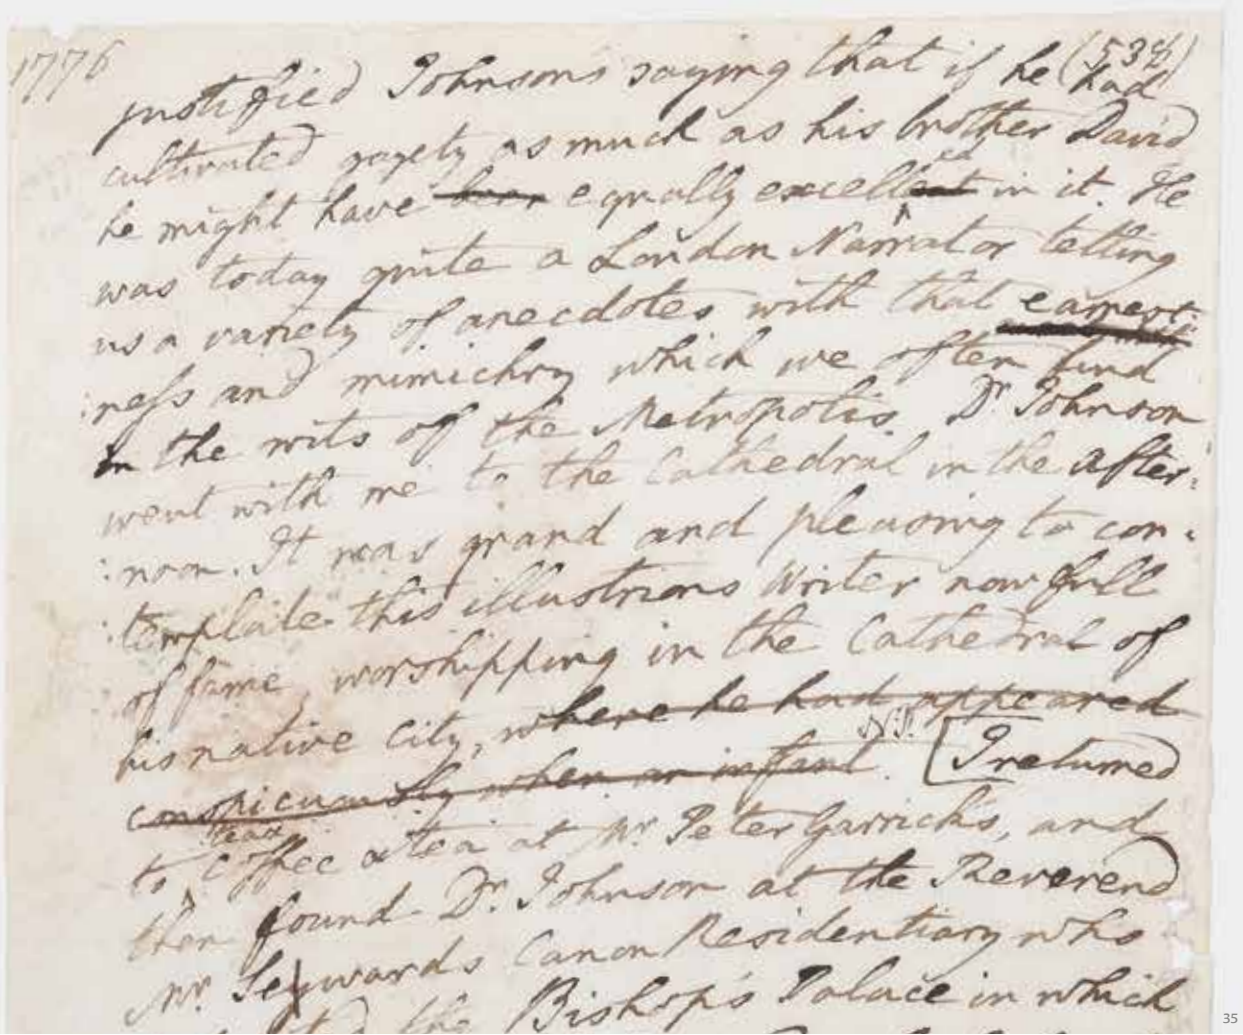 1776
(538)
justified Johnson's saying that if he had
cultivated gayety as much as his brother David
he might have been equally excellent ed in it. He
was today quite a London Narrator telling
us a variety of anecdotes with that earnest:
:ness and mimickry which we often find
in the wits of the Metropolis. Dr. Johnson
went with me to the Cathedral in the after:
:noon. It was grand and pleasing to con:
:template this illustrious Writer now full
of fame worshipping in the Cathedral of
his native City, where he had appeared
conspicuously when an infant. N.P. [I returned
to tea & coffee & tea at Mr. Peter Garrick's, and
then found Dr. Johnson at the Reverend
Mr. Sewards Canon Residentiary who
the Bishop's Palace in which
35